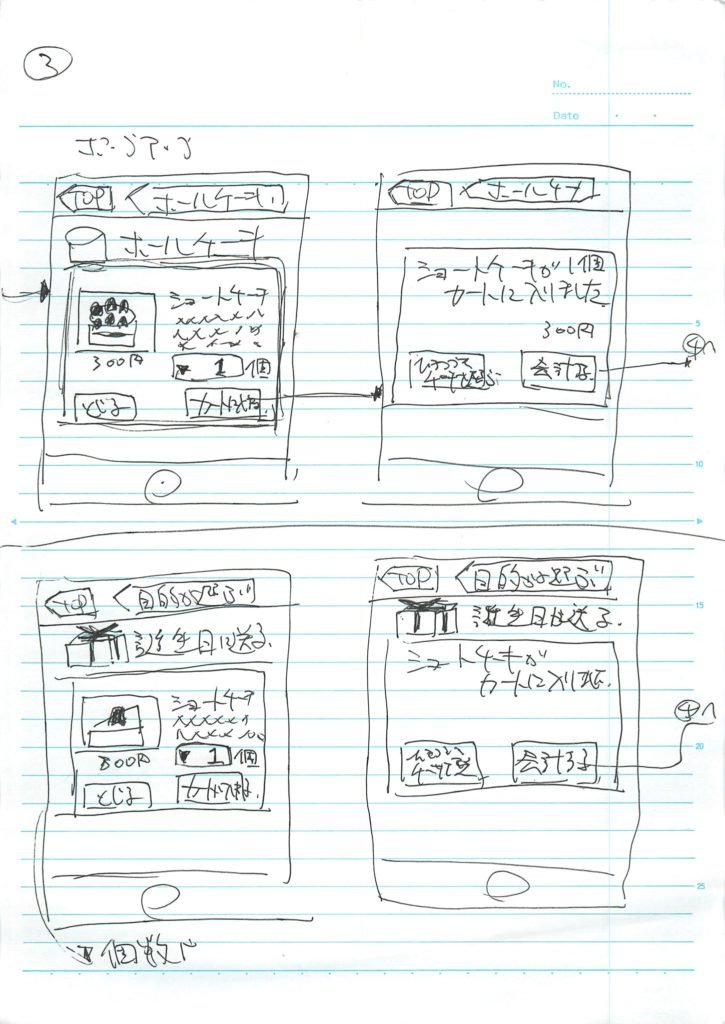 3
No.
Date
ポップアップ
TOP ホールケーキ
ホールケーキ
ショートケーキ
xxxxx
xxxx
300円
1 個
とじる カートに入れる
TOP ホールケーキ
ショートケーキが1個
カートに入りました
300円
会計する
④へ
5
10
TOP 目的から選ぶ
誕生日に送る
ショートケーキ
xxxxx
300円
1 個
とじる カートに入れる
TOP 目的から選ぶ
誕生日に送る
ショートケーキが
カートに入りました
会計する
④へ
15
20
25
個数